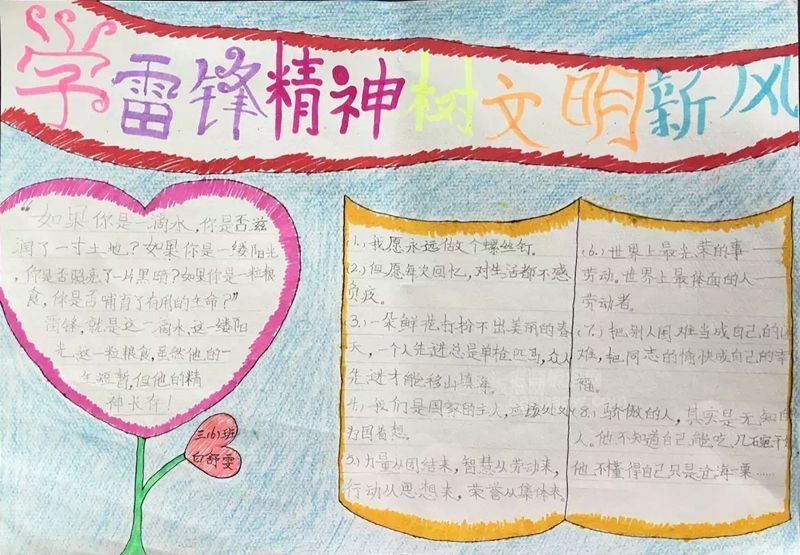 学雷锋精神树文明新风
"如果你是一滴水,你是否滋
润了一寸土地?如果你是一缕阳光
,你是否照亮了一片黑暗?如果你是一粒粮
食,你是否哺育了有用的生命?"
雷锋,就是这一滴水,这一缕阳
光,这一粒粮食,虽然他的一
生短暂,但他的精
神长存!
三(6)班
白舒雯
(1.)我愿永远做个螺丝钉。
(2.)但愿每次回忆,对生活都不感
负疚。
(3.)一朵鲜花打扮不出美丽的春
天,一个人先进总是单枪匹马,众人
先进才能移山填海。
(4.)我们是国家的主人,应该处处
为国着想。
(5.)力量从团结来,智慧从劳动来,
行动从思想来,荣誉从集体来。
(6.)世界上最光荣的事——
劳动。世界上最体面的人——
劳动者。
(7.)把别人困难当成自己的困
难,把同志的愉快成自己的幸
福。
(8.)骄傲的人,其实是无知的
人。他不知道自己能吃几碗干饭
他不懂得自己只是沧海一粟……